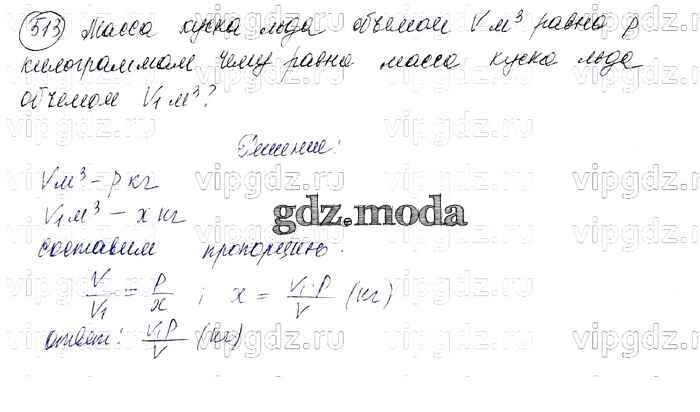 513 Масса куска льда объемом V м³ равна p
килограммам чему равна масса куска льда
объемом V₁ м³?
Решение:
V м³ - p кг
V₁ м³ - x кг
gdz.moda
составим пропорцию.
V/V₁ = p/x ; x = V₁·p/V (кг)
ответ: V₁p/V (кг)
vipgdz.ru